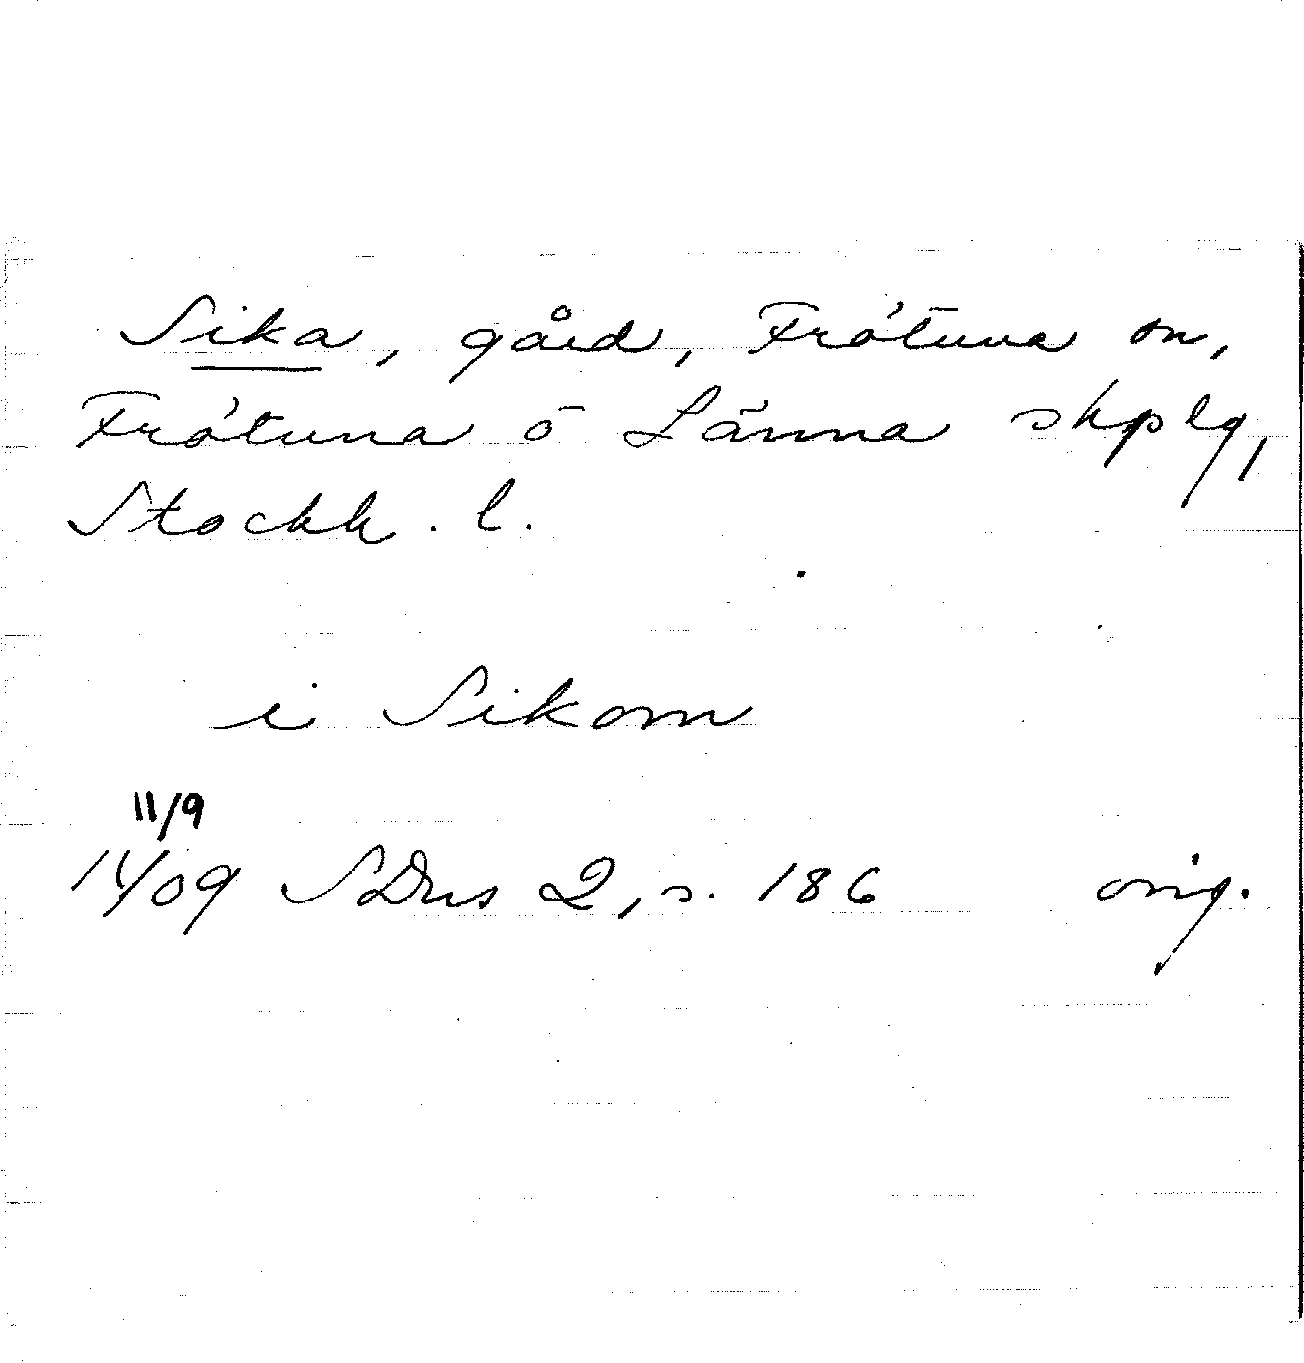 Sika, gård, Frötuna sn,
Frötuna o Länna skplg,
Stockh. l.
i Sikom
11/9
1409 SDns 2, s. 186 orig.